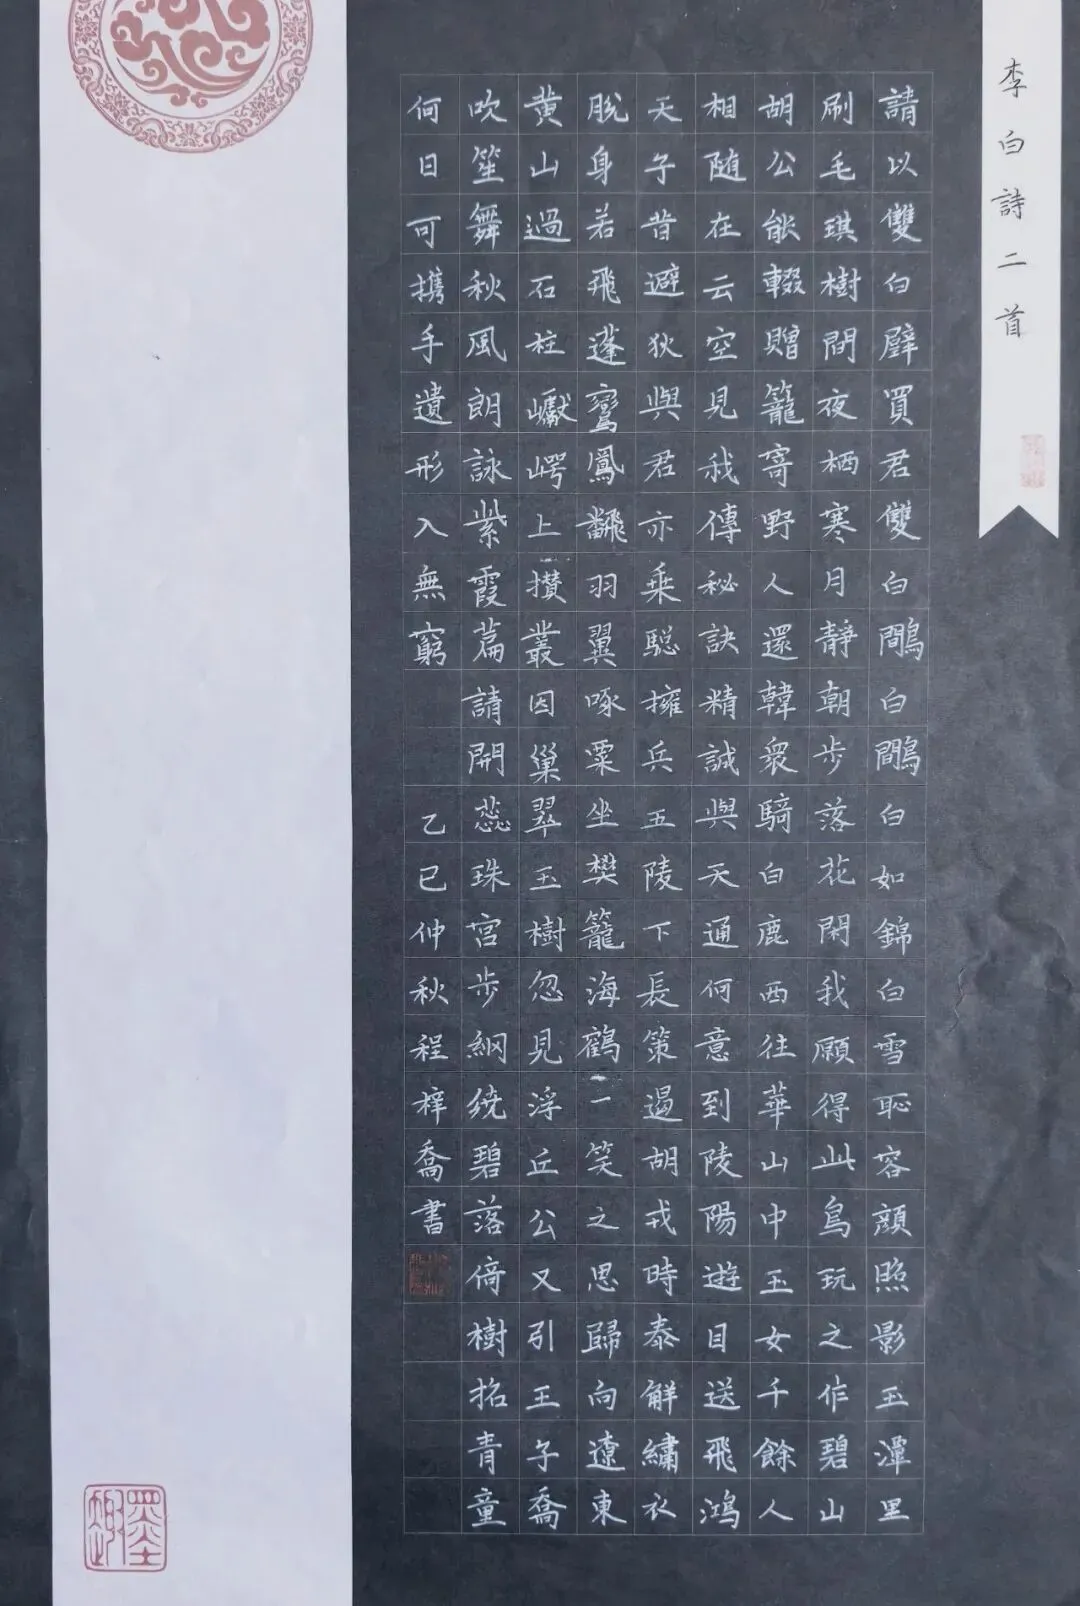 李白詩二首
請以雙白璧買君雙白鷴白鷴白如錦白雪恥容顏照影玉潭里
刷毛琪樹間夜栖寒月靜朝步落花閑我願得此鳥玩之作碧山
胡公能輟贈籠寄野人還韓衆騎白鹿西往華山中玉女千餘人
相随在云空見我傳秘訣精誠與天通何意到陵陽遊目送飛鴻
天子昔避狄與君亦乘驄擁兵五陵下長策遏胡戎時泰解繡衣
脫身若飛蓬鸞鳳飜羽翼啄粟坐樊籠海鶴一笑之思歸向遼東
黄山過石柱巘崿上攢叢因巢翠玉樹忽見浮丘公又引王子喬
吹笙舞秋風朗詠紫霞篇請開蕊珠宮步綱繞碧落倚樹招青童
何日可携手遺形入無窮
乙巳仲秋程梓喬書
墨趣